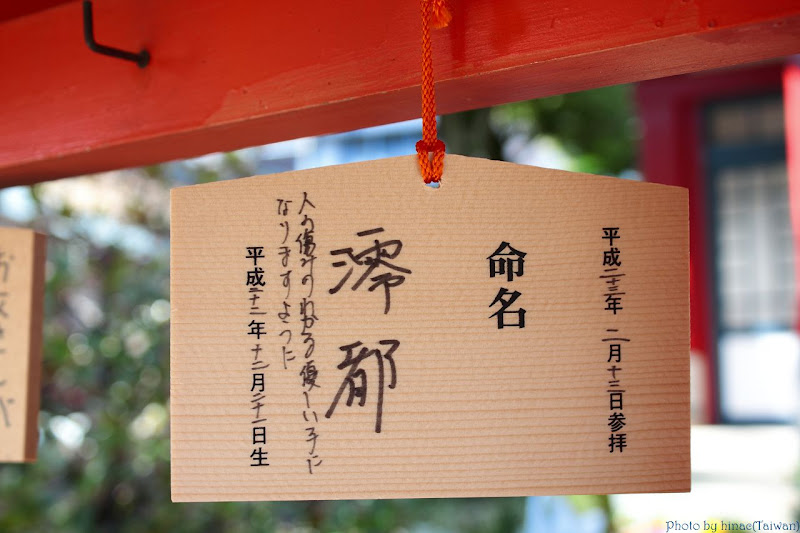 平成二十三年 二月十三日参拝
命名
澪都
人の傷みのわかる優しい子に
なりますように
平成二十二年十二月二十一日生
Photo by hinae(Taiwan)